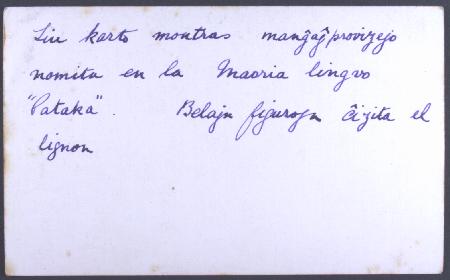 Liu karto montras manĝaĵprovizejo
nomita en la Maoria lingvo
"Pataka". Belajn figurojn ĉizita el
lignon